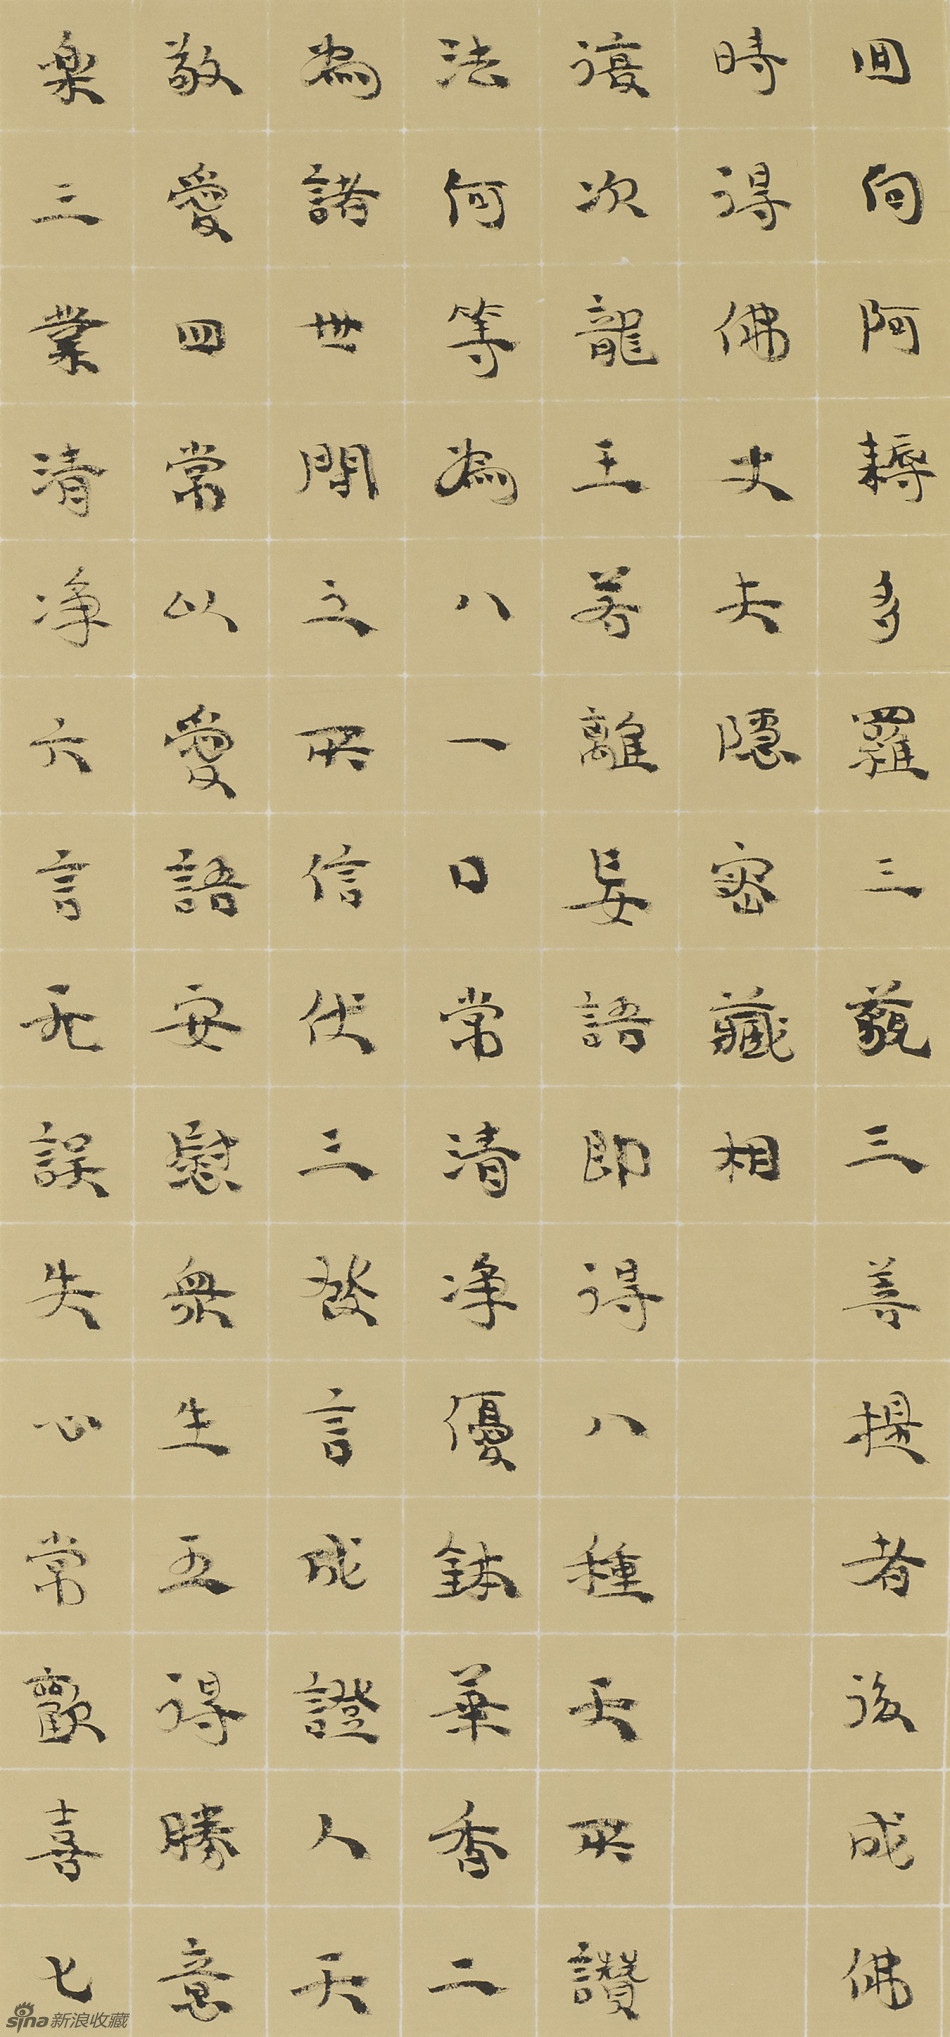 回向阿耨多羅三藐三菩提者後成佛
時得佛丈夫隱密藏相
復次龍王若離妄語即得八種天所讚
法何等為八一口常清淨優鉢華香二
為諸世間之所信伏三發言成證人天
敬愛四常以愛語安慰衆生五得勝意
樂三業清淨六言无誤失心常歡喜七
sina新浪收藏